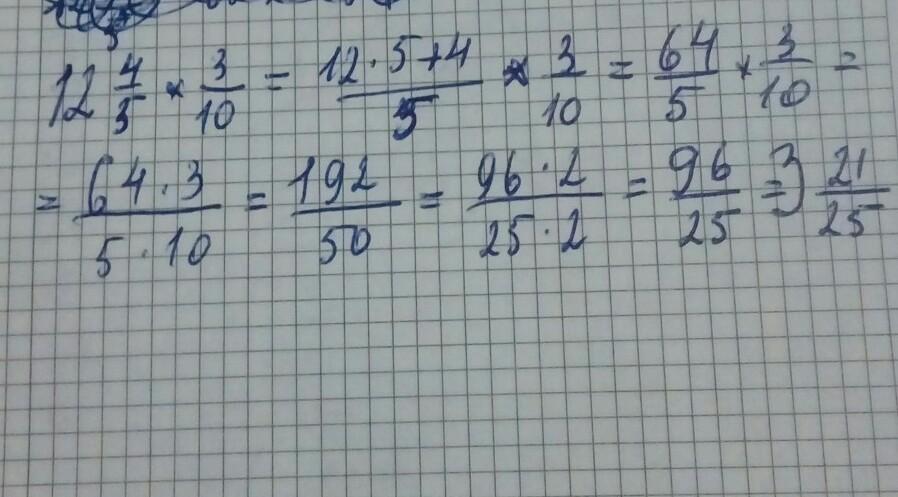 12 4/5 × 3/10 = (12·5+4)/5 × 3/10 = 64/5 × 3/10 =
= (64·3)/(5·10) = 192/50 = (96·2)/(25·2) = 96/25 = 3 21/25